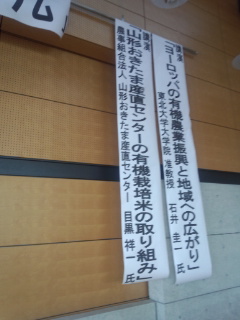 講演
「ヨーロッパの有機農業振興と地域への広がり」
東北大学大学院 准教授 石井 圭一 氏
講演
「山形おきたま産直センターの有機栽培米の取り組み」
農事組合法人 山形おきたま産直センター 目黒 祥一 氏